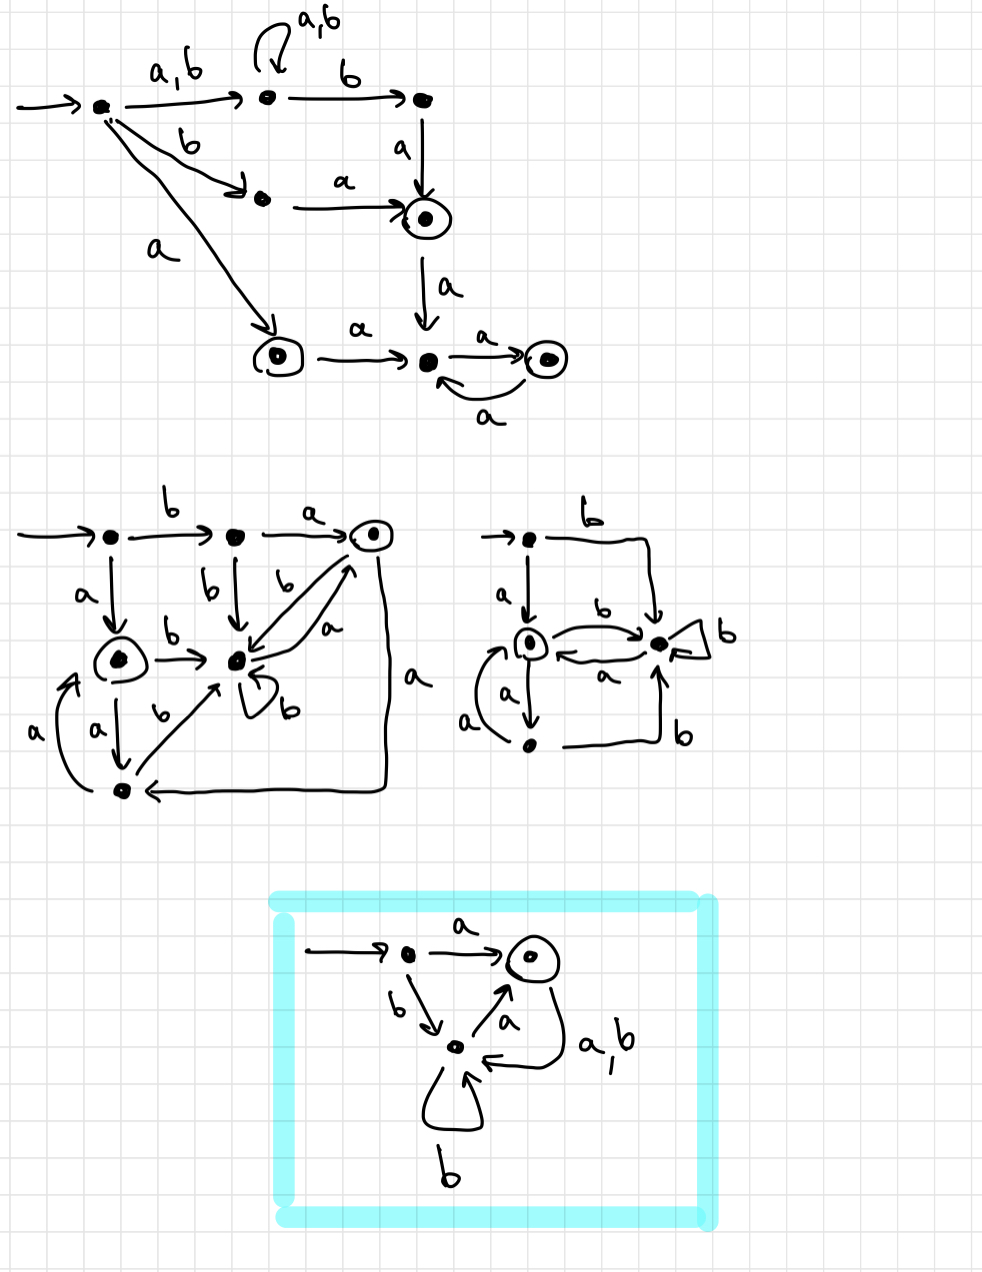 a,b
a,b
b
b
a
a
a
a
a
a
a
b
a
b
a
b
b
a
b
a
b
a
a
b
a
b
b
a
a
a
b
a
b
a
a,b
b